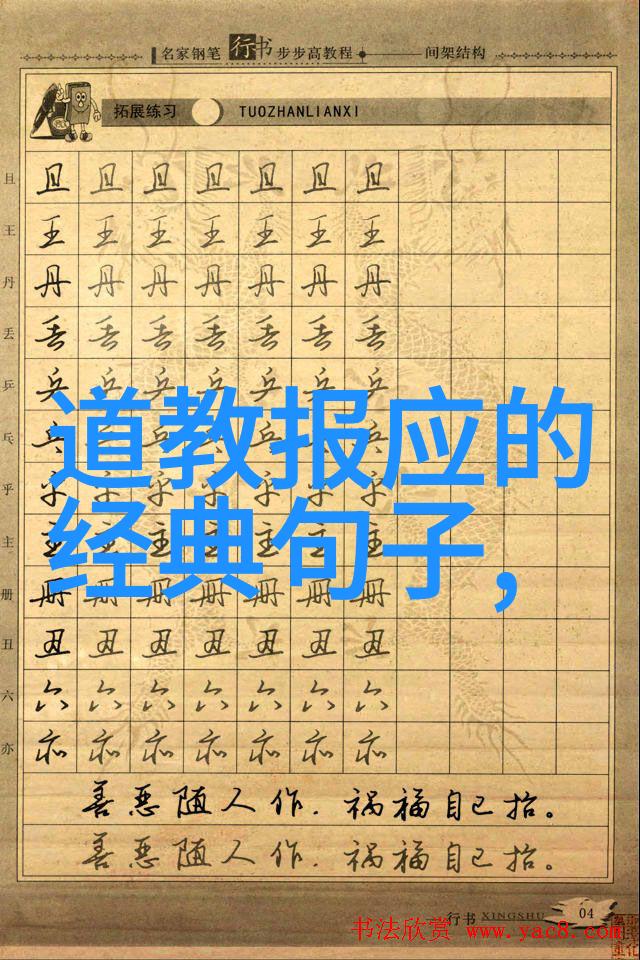 名家钢笔行书步步高教程 间架结构
拓展练习 TUOZHANLIANXI
且 且 且 且 且 且 且 且
王 王 王 王 王 王 王 王
丹 丹 丹 丹 丹 丹 丹 丹
丢 丢 丢 丢 丢 丢 丢 丢
乒 乒 乒 乒 乒 乒 乒 乒
乓 乓 乓 乓 乓 乓 乓 乓
道教报应的
乎 乎 乎 乎 乎 乎 乎 乎
主 主 主 主 主 主 主 主
经典句子，
册 册 册 册 册 册 册 册
丑 丑 丑 丑 丑 丑 丑 丑
六 六 六 六 六 六 六 六
亦 亦 亦 亦 亦 亦 亦 亦
善恶随人作，祸福自己招。
善恶随人作，祸福自己招。
行书 XINGSHU 04
书法欣赏 www.yac8.com